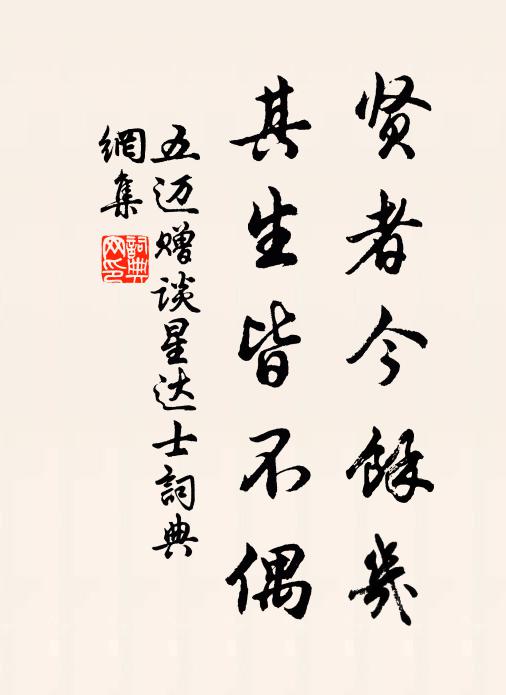 贤者今馀几
其生皆不偶
五迈赠谈星达士詞典
網集
詞典
网印